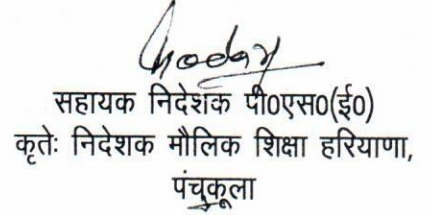 सहायक निदेशक पी०एस०(ई०)
कृतेः निदेशक मौलिक शिक्षा हरियाणा,
पंचकूला